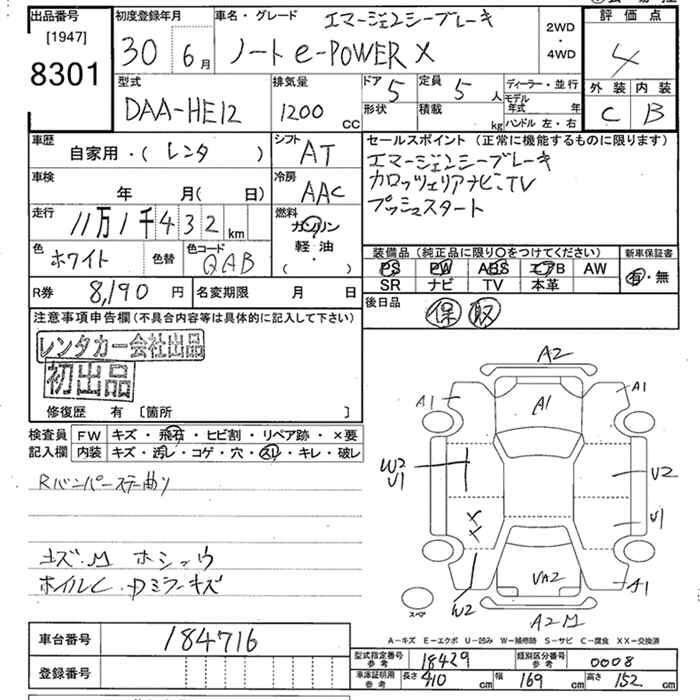 出品番号 初度登録年月 車名・グレード エマージェンシーブレーキ 2WD・4WD 評価点
[1947]
8301 30 6月 ノート e-POWER X 4
型式 排気量 ドア 5 定員 5人 ディーラー・並行 外装 内装
DAA-HE12 1200cc 形状 積載 kg モデル年式 年 ハンドル 左・右 C B
車歴 自家用・(レンタ ) シフト AT セールスポイント (正常に機能するものに限ります)
エマージェンシーブレーキ
車検 年 月( 日) 冷房 AAC カロッツェリアナビ、TV
プッシュスタート
走行 11万1千432km 燃料 ガソリン 軽油 ( ・ )
色 ホワイト 色替 色コード QAB 装備品 (純正品に限り〇をつけてください) 新車保証書
PS PW ABS エアB AW 有・無
R券 8,190円 名変期限 月 日 SR ナビ TV 本革
後日品 保 取
注意事項申告欄 (不具合内容等は具体的に記入して下さい)
レンタカー会社出品
初出品
修復歴 有 [箇所 ]
検査員 FW キズ・飛石・ヒビ割・リペア跡・×要
記入欄 内装 キズ・汚レ・コゲ・穴・スレ・キレ・破レ
Rバンパーステー曲り
キズ・M ホシュウ
ホイルC・Dミラーキズ
A2
A1 A1 A1
W2
U1 U2
U1
X
X
VA2 A1
W2 A2 M
スペア
A-キズ E-エクボ U-凹み W-補修跡 S-サビ C-腐食 XX-交換済
車台番号 184716
登録番号
型式指定番号 参考 18429 類別区分番号 参考 0008
車庫証明用 参考 長さ 410cm 幅 169cm 高さ 152cm